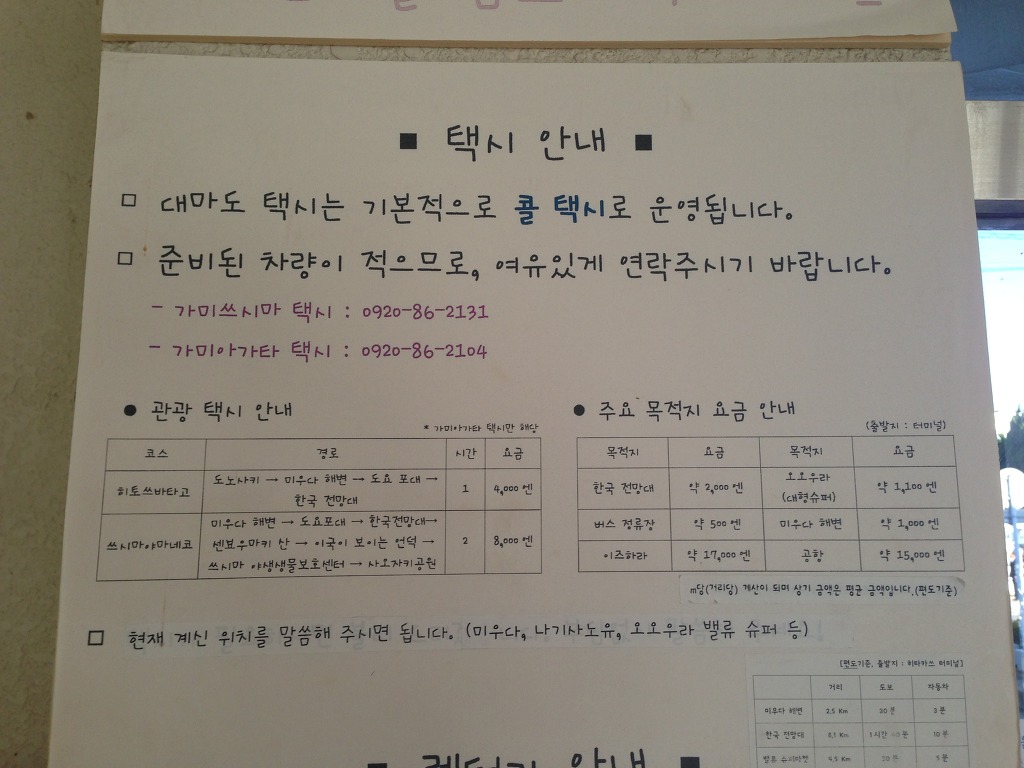 ■ 택시 안내 ■
□ 대마도 택시는 기본적으로 콜 택시로 운영됩니다.
□ 준비된 차량이 적으므로, 여유있게 연락주시기 바랍니다.
- 가미쓰시마 택시 : 0920-86-2131
- 가미아가타 택시 : 0920-86-2104
● 관광 택시 안내
* 가미아가타 택시만 해당
코스 경로 시간 요금
히토쓰바타고 도노사키 → 미우다 해변 → 도요 포대 → 한국 전망대 1 4,000엔
쓰시마야마네코 미우다 해변 → 도요포대 → 한국전망대→ 센뵤우마키 산 → 이국이 보이는 언덕 → 쓰시마 야생생물보호센터 → 사오자키공원 2 8,000엔
● 주요 목적지 요금 안내
(출발지 : 터미널)
목적지 요금 목적지 요금
한국 전망대 약 2,000엔 오오우라 (대형슈퍼) 약 1,100엔
버스 정류장 약 500엔 미우다 해변 약 1,000엔
이즈하라 약 17,000엔 공항 약 15,000엔
m당(거리당) 계산이 되며 상기 금액은 평균 금액입니다.(편도기준)
□ 현재 계신 위치를 말씀해 주시면 됩니다. (미우다, 나기사노유, 오오우라 밸류 슈퍼 등)
[편도기준, 출발지 : 히타카쓰 터미널]
거리 도보 자동차
미우다 해변 2,5 Km 30분 3분
한국 전망대 1시간 10분
밸류 슈퍼마켓 5분
■ 안내 ■